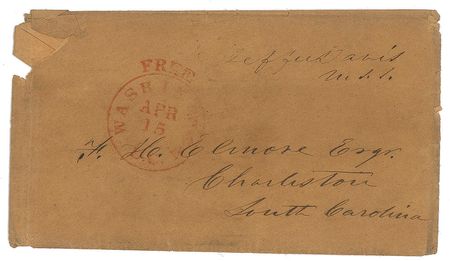 FREE
WASHI
APR
15
Jeffer Davis
U.S.S.
F. H. Elmore Esqr.
Charleston
South Carolina